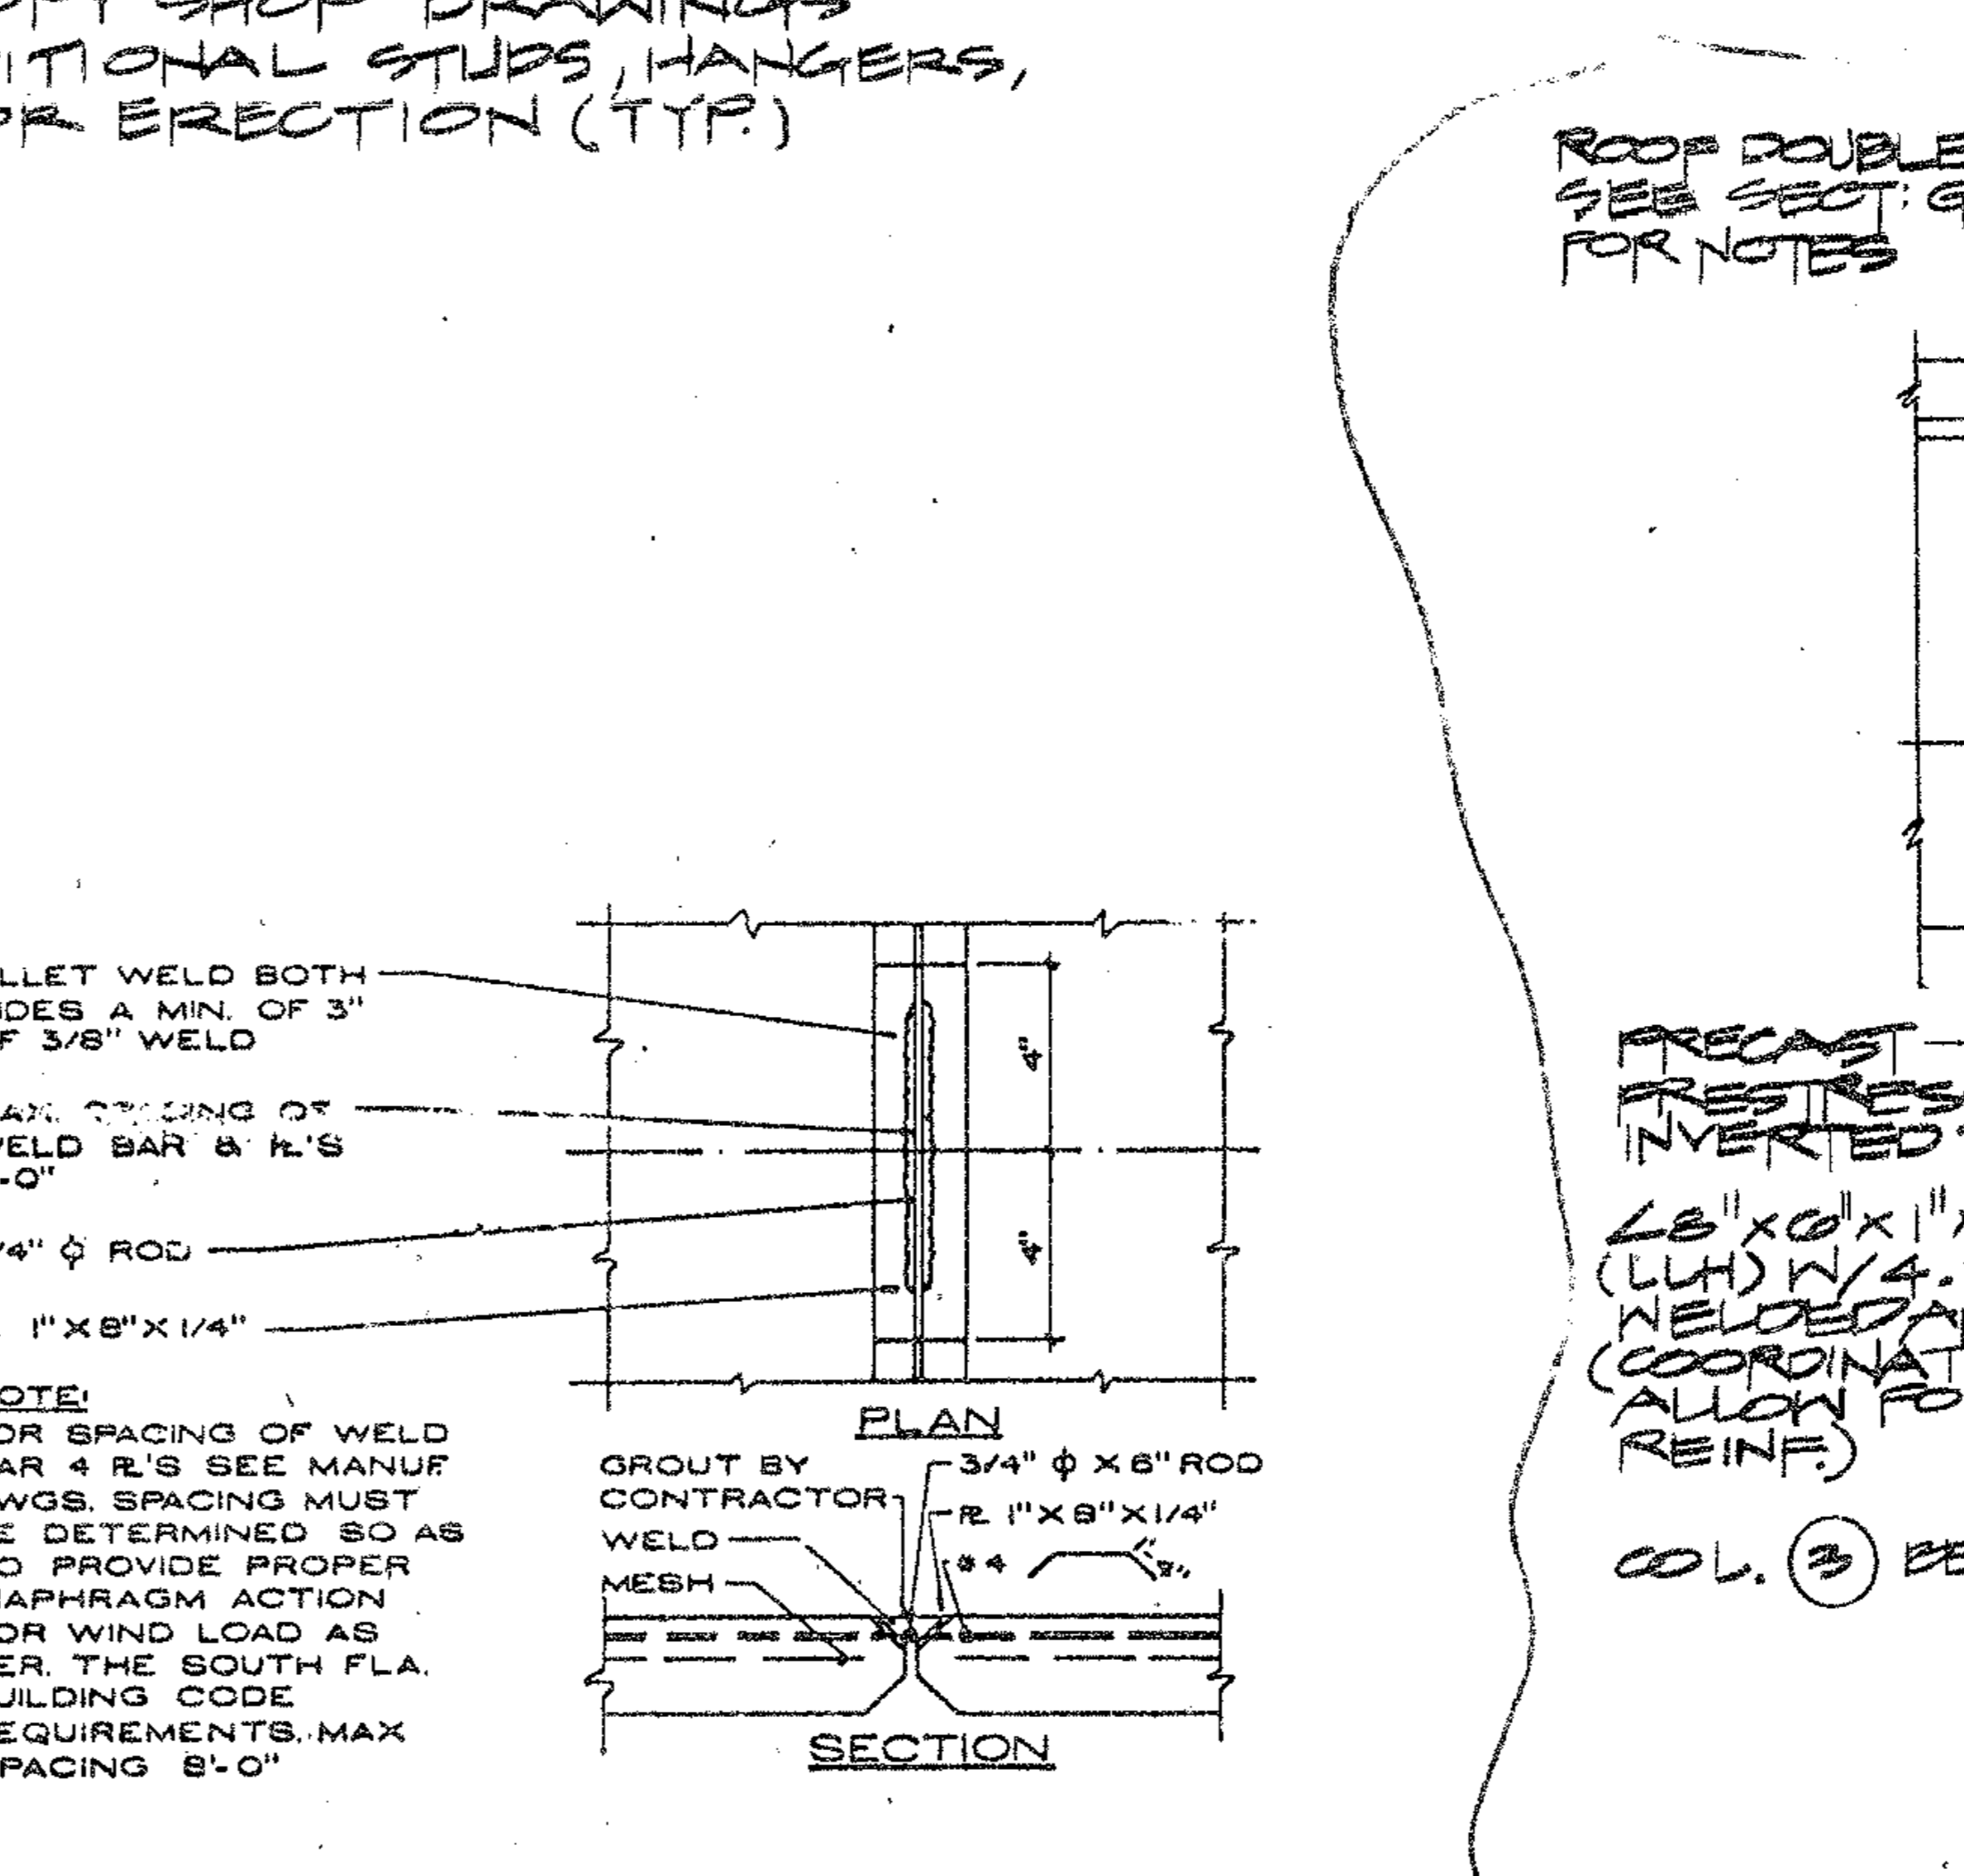 OPY SHOP DRAWINGS
ITIONAL STUDS, HANGERS,
OR ERECTION (TYP.)
ROOF DOUBLE
SEE SECT. G
FOR NOTES
LLET WELD BOTH
IDES A MIN. OF 3"
F 3/8" WELD
AX. SPACING OF
WELD BAR & PL'S
-0"
/4" φ ROD
1" X 8" X 1/4"
4"
4"
PLAN
OTE:
OR SPACING OF WELD
AR & PL'S SEE MANUF.
WGS. SPACING MUST
E DETERMINED SO AS
O PROVIDE PROPER
IAPHRAGM ACTION
OR WIND LOAD AS
ER. THE SOUTH FLA.
UILDING CODE
EQUIREMENTS. MAX
PACING 8'-0"
GROUT BY
CONTRACTOR
WELD
MESH
3/4" φ X 6" ROD
PL 1" X 8" X 1/4"
#4
SECTION
PRECAST
PRESTRES
INVERTED
L8"X6"X1"X
(LLH) W/4.
WELDED A
(COORDINAT
ALLOW FO
REINF.)
COL. B BE